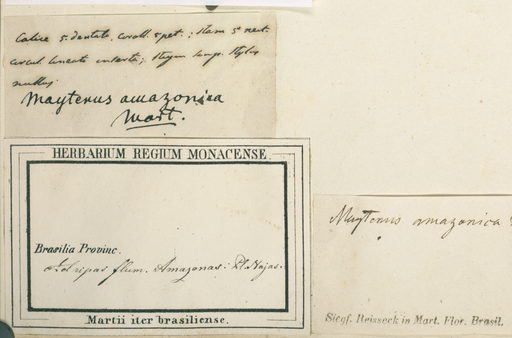 Calice 5. dentato, coroll. 5 pet.; stam 5 
circul lineato inserta; stigm
nullus
Maytenus amazonica
Mart.
HERBARIUM REGIUM MONACENSE.
Brasilia Provinc.
ripas flum. Amazonas:
Martii iter brasiliense.
Maytenus amazonica
Siegf. Reisseck in Mart. Flor. Brasil.